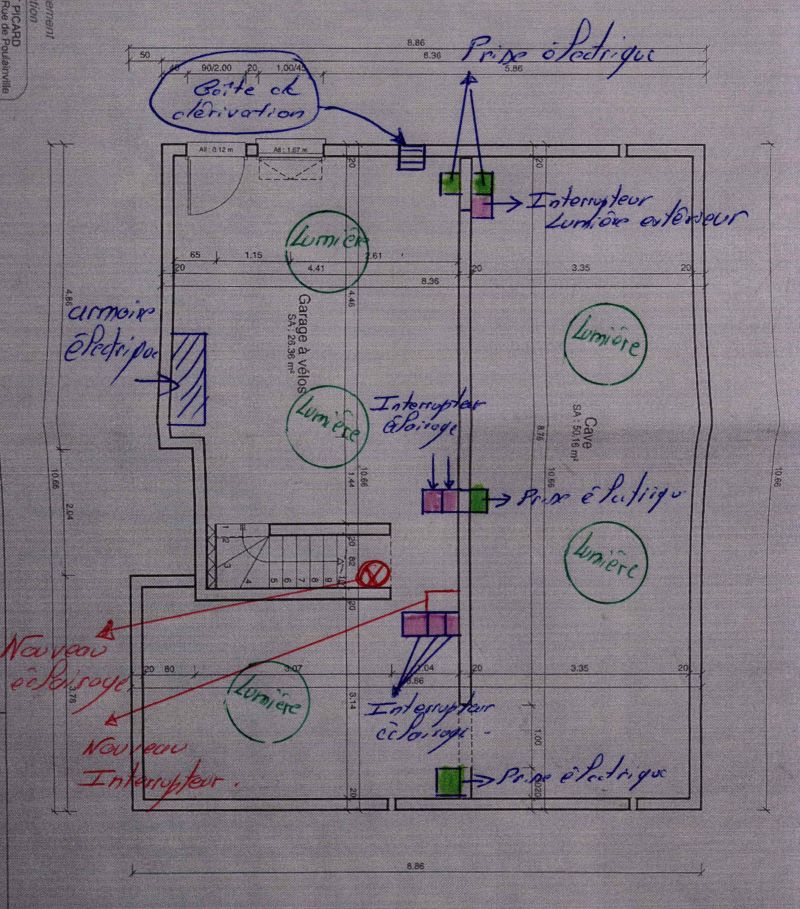 PICARD
Rue de Poulainville
8.86
50
8.36
5.86
90/2.00
20
1,00/45
Prise électrique
Boîte de
dérivation
All : 0.12 m
All : 1.67 m
20
20
Interrupteur
Lumière extérieur
Lumière
65
1.15
2.61
20
4.41
20
3.35
20
8.36
4.86
4.46
armoire
électrique
Garage à vélos
SA : 26.36 m²
Lumière
Lumière
Interrupteur
éclairage
8.76
Cave
SA : 50.16 m²
1.44
10.66
10.66
10.66
2.04
Prise électrique
1
2
3
4
5
6
7
8
9
20
82
20
Lumière
Nouveau
éclairage
20
80
3.07
2.04
20
3.35
20
8.86
3.76
3.14
Lumière
Interrupteur
éclairage
1.00
Nouveau
Interrupteur.
Prise électrique
20
8.86